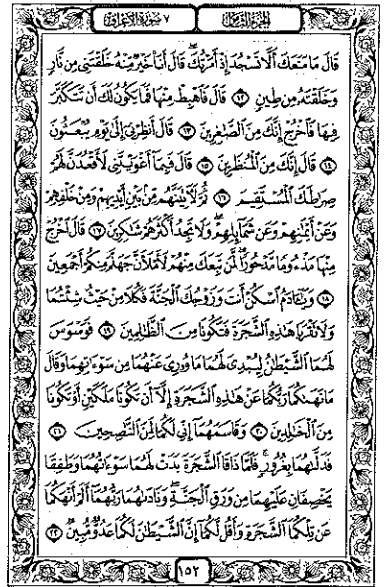 الجزء الثامن ٧ سورة الأعراف
قَالَ مَا مَنَعَكَ أَلَّا تَسْجُدَ إِذْ أَمَرْتُكَ ۖ قَالَ أَنَا۠ خَيْرٌ مِّنْهُ خَلَقْتَنِى مِن نَّارٍ
وَخَلَقْتَهُۥ مِن طِينٍ ﴿١٢﴾ قَالَ فَٱهْبِطْ مِنْهَا فَمَا يَكُونُ لَكَ أَن تَتَكَبَّرَ
فِيهَا فَٱخْرُجْ إِنَّكَ مِنَ ٱلصَّٰغِرِينَ ﴿١٣﴾ قَالَ أَنظِرْنِىٓ إِلَىٰ يَوْمِ يُبْعَثُونَ
﴿١٤﴾ قَالَ إِنَّكَ مِنَ ٱلْمُنظَرِينَ ﴿١٥﴾ قَالَ فَبِمَآ أَغْوَيْتَنِى لَأَقْعُدَنَّ لَهُمْ
صِرَٰطَكَ ٱلْمُسْتَقِيمَ ﴿١٦﴾ ثُمَّ لَءَاتِيَنَّهُم مِّنۢ بَيْنِ أَيْدِيهِمْ وَمِنْ خَلْفِهِمْ
وَعَنْ أَيْمَٰنِهِمْ وَعَن شَمَآئِلِهِمْ ۖ وَلَا تَجِدُ أَكْثَرَهُمْ شَٰكِرِينَ ﴿١٧﴾ قَالَ ٱخْرُجْ
مِنْهَا مَذْءُومًا مَّدْحُورًا ۖ لَّمَن تَبِعَكَ مِنْهُمْ لَأَمْلَأَنَّ جَهَنَّمَ مِنكُمْ أَجْمَعِينَ
﴿١٨﴾ وَيَٰٓـَٔادَمُ ٱسْكُنْ أَنتَ وَزَوْجُكَ ٱلْجَنَّةَ فَكُلَا مِنْ حَيْثُ شِئْتُمَا
وَلَا تَقْرَبَا هَٰذِهِ ٱلشَّجَرَةَ فَتَكُونَا مِنَ ٱلظَّٰلِمِينَ ﴿١٩﴾ فَوَسْوَسَ
لَهُمَا ٱلشَّيْطَٰنُ لِيُبْدِىَ لَهُمَا مَا وُۥرِىَ عَنْهُمَا مِن سَوْءَٰتِهِمَا وَقَالَ
مَا نَهَىٰكُمَا رَبُّكُمَا عَنْ هَٰذِهِ ٱلشَّجَرَةِ إِلَّآ أَن تَكُونَا مَلَكَيْنِ أَوْ تَكُونَا
مِنَ ٱلْخَٰلِدِينَ ﴿٢٠﴾ وَقَاسَمَهُمَآ إِنِّى لَكُمَا لَمِنَ ٱلنَّٰصِحِينَ ﴿٢١﴾
فَدَلَّىٰهُمَا بِغُرُورٍ ۚ فَلَمَّا ذَاقَا ٱلشَّجَرَةَ بَدَتْ لَهُمَا سَوْءَٰتُهُمَا وَطَفِقَا
يَخْصِفَانِ عَلَيْهِمَا مِن وَرَقِ ٱلْجَنَّةِ ۖ وَنَادَىٰهُمَا رَبُّهُمَآ أَلَمْ أَنْهَكُمَا
عَن تِلْكُمَا ٱلشَّجَرَةِ وَأَقُل لَّكُمَآ إِنَّ ٱلشَّيْطَٰنَ لَكُمَا عَدُوٌّ مُّبِينٌ ﴿٢٢﴾
١٥٢